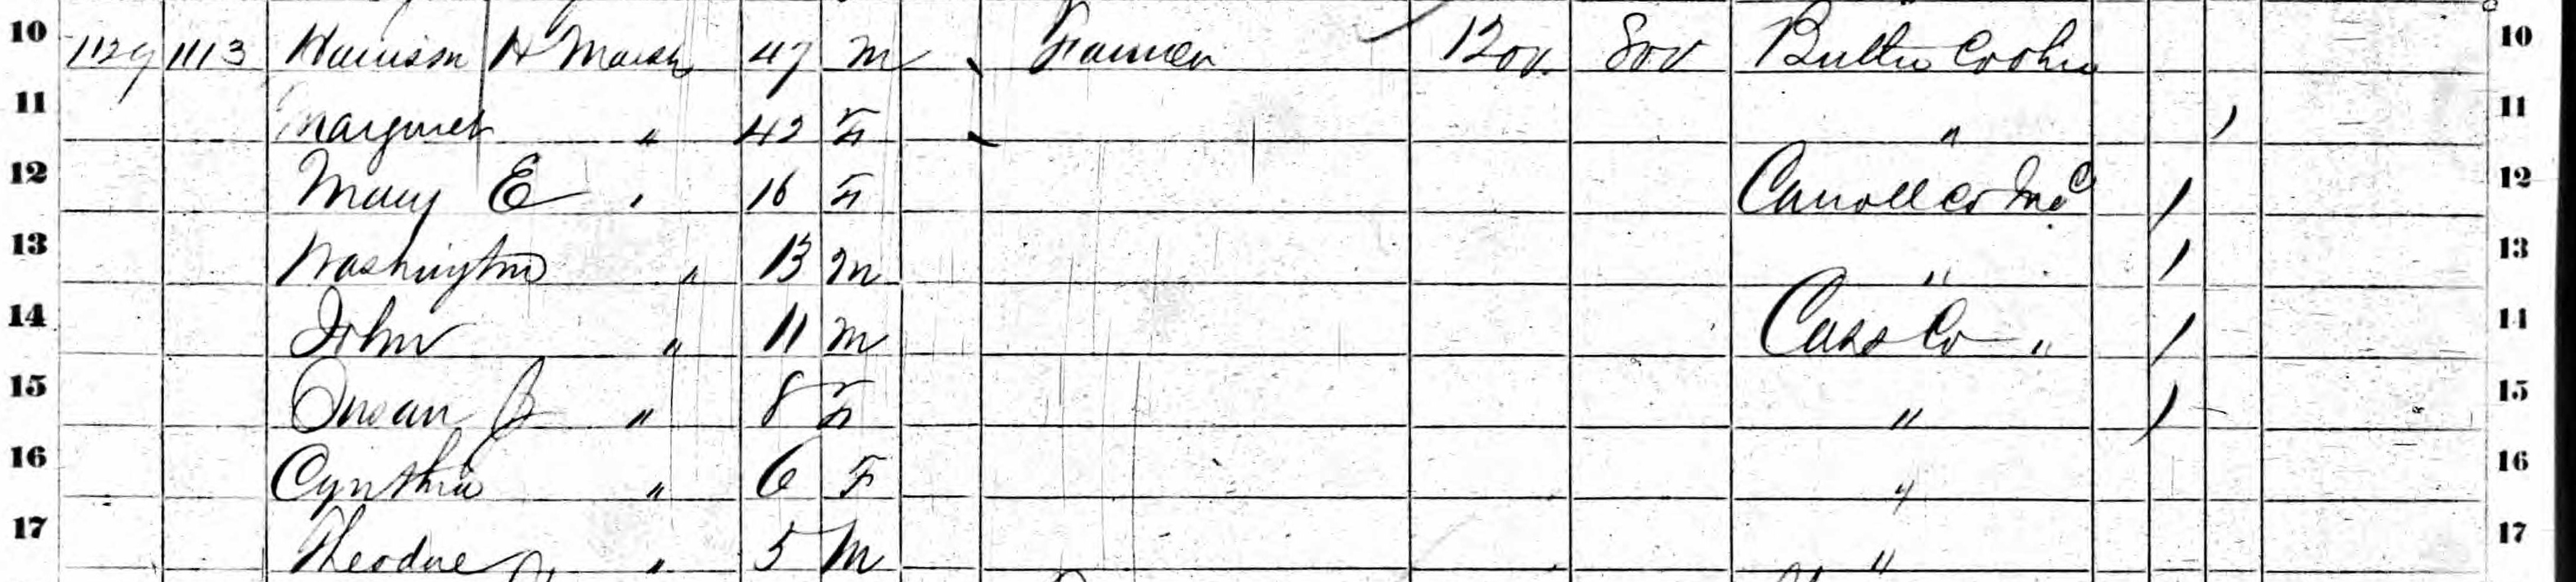 10 1129 1113 Harrison H Marsh 47 M Farmer 1200 800 Butler Co Ohio 10
11 Margaret " 42 F " 11
12 Mary E " 16 F Carroll Co Ind 12
13 Washington " 13 M " 13
14 John " 11 M Cass Co " 14
15 Susan J " 8 F " 15
16 Cynthia " 6 F " 16
17 Theodore " 5 M " 17